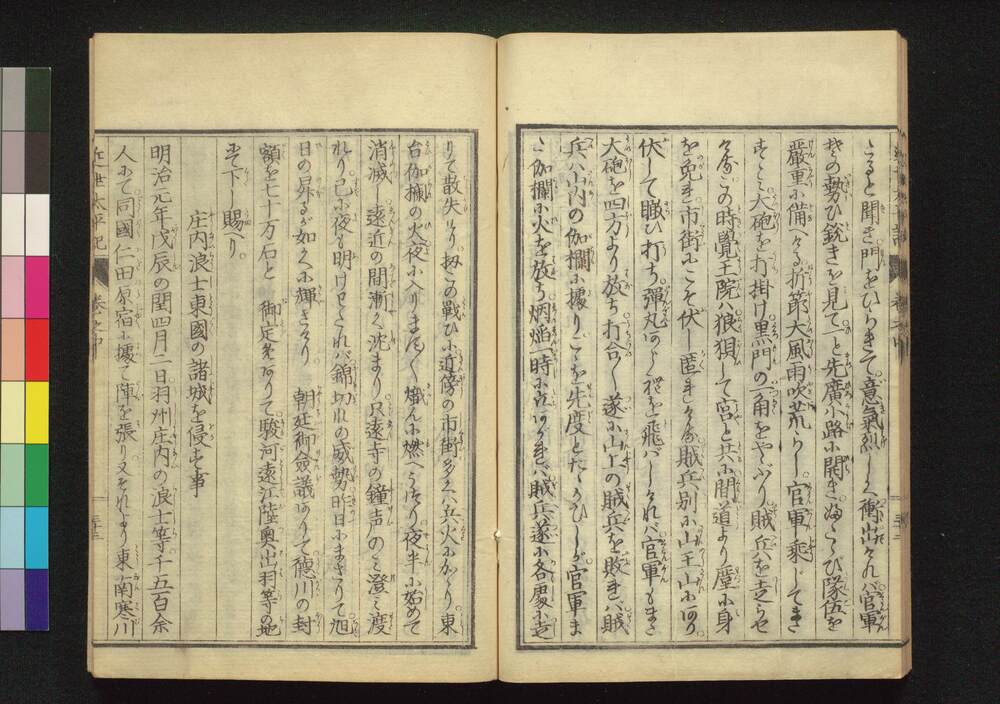 こゝると聞き門をひらきて意氣烈しく衝出ければ官軍
其の勢ひ鋭きを見て先廣小路に開きふたゝび隊伍を
嚴重に備へける折節大風雨吹荒らし官軍乘じてき
大砲を打掛け黒門の一角をやぶり賊兵を走らせ
此時覺王院は狼狽して宮と兵に間道より僅に身
を免れ市街にこそ伏し匿れける賊兵別に山王山にあり
伏して瞰ひ打ち彈丸あられを飛ばしければ官軍もまた
大砲を四方より放ち打合し遂に山上の賊兵を敗れば賊
兵は内の伽欄に據りこゝを先度とたゝかひしが官軍ま
た伽欄に火を放ち烟焔一時に立あがれば賊兵遂に各處に走
りて散失けり扨この戰ひに近傍の市街多く兵火にかゝり東
台伽欄の火夜に入りますます熾んに燃へうつり夜半に始めて
消滅 遠近の間漸く沈まり只遠寺の鐘声のみ澄み渡
れり已に夜も明けわたれば錦切れの威勢昨日にまさりて旭
日の昇るが如くに輝きけり 朝廷御僉議ありて徳川の封
額を七十万石と 御定めありて駿河遠江陸奥出羽等の地
にて下し賜へり
庄内浪士東國の諸城を侵す事
明治元年戊辰の閏四月二日羽州庄内の浪士等千五百余
人にて同國仁田原宿に據て陣を張り又それより東南寒川
近世太平記 巻之中